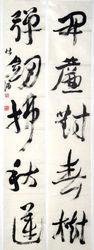 開簾對春樹
彈劍拂秋蓮